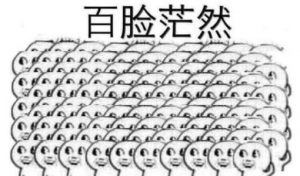 百脸茫然